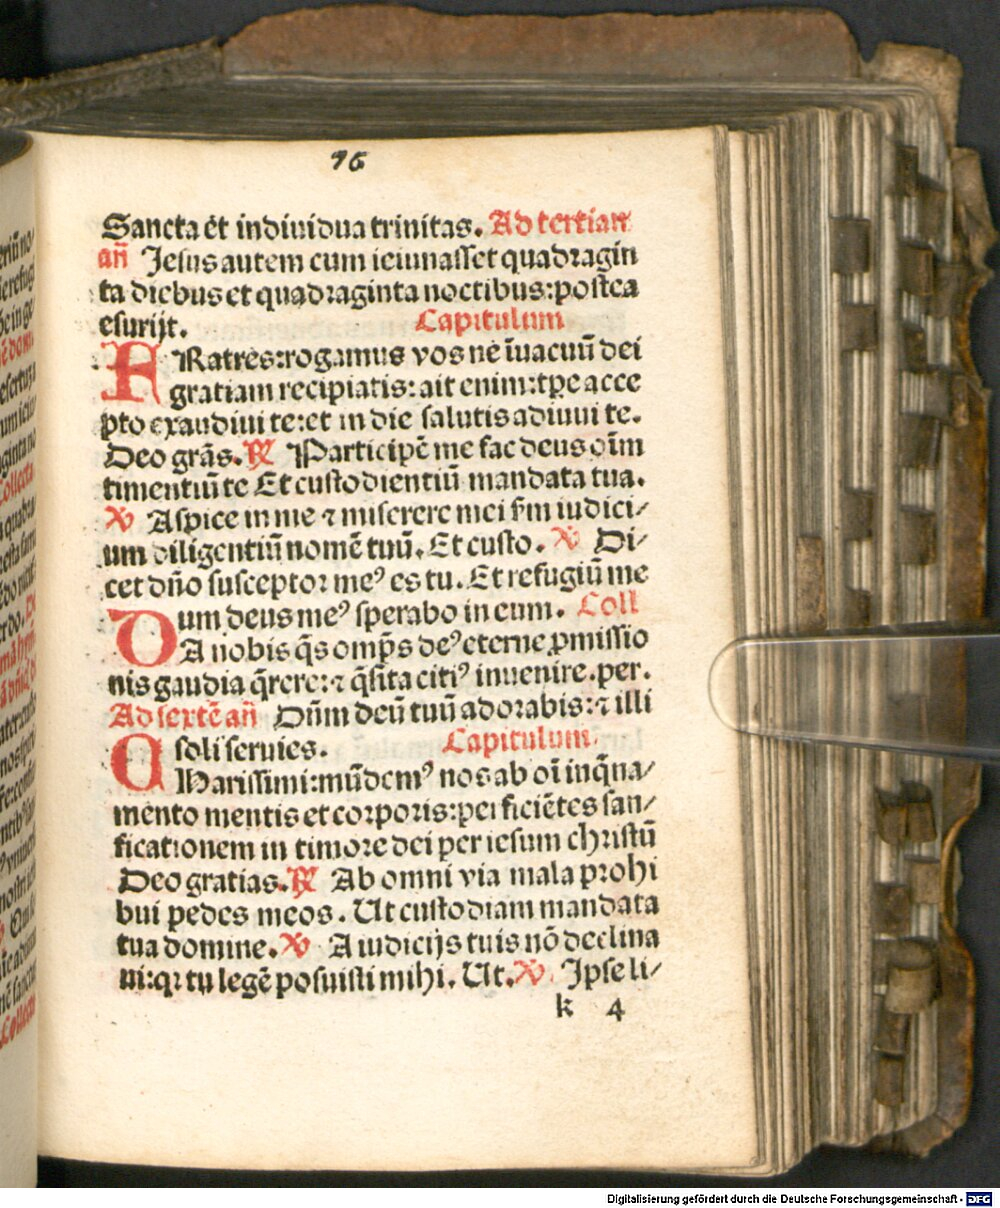 76
Sancta et indiuidua trinitas. Ad tertiam
an̄ Jesus autem cum ieiunasset quadragin
ta diebus et quadraginta noctibus: postea
esurijt. Capitulum
FRatres: rogamus vos ne īuacuū dei
gratiam recipiatis: ait enim: tp̄e acce
pto exaudiui te: et in die salutis adiuui te.
Deo grās. R̄ Participē me fac deus oīm
timentiū te Et custodientiū mandata tua.
V̄ Aspice in me ⁊ miserere mei ſm iudici/
um diligentiū nomē tuū. Et custo. V̄ Di/
cet dn̄o susceptor meꝰ es tu. Et refugiū me
um deus meꝰ sperabo in eum. Coll
DA nobis q̄s omp̄s deꝰ eterne ꝓmissio
nis gaudia q̄rere: ⁊ q̄sita citiꝰ inuenire. per.
Ad sextē an̄ Dūm deū tuū adorabis: ⁊ illi
soli seruies. Capitulum
CHarissimi: mūdemꝰ nos ab oī inq̄na/
mento mentis et corporis: perficiētes san/
ficationem in timore dei per iesum christū
Deo gratias. R̄ Ab omni via mala prohi
bui pedes meos. Ut custodiam mandata
tua domine. V̄ A iudicijs tuis nō declina
ui: qꝛ tu legē posuisti mihi. Ut. V̄ Ipse li/
k 4
Digitalisierung gefördert durch die Deutsche Forschungsgemeinschaft - DFG